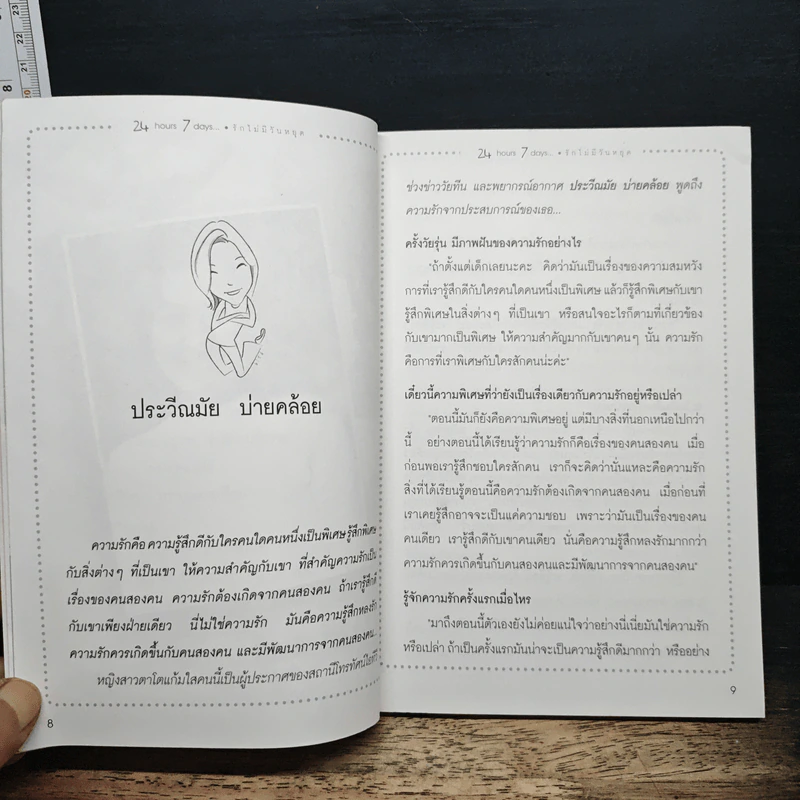 24 hours 7 days... • รักไม่มีวันหยุด
ประวีณมัย บ่ายคล้อย
ความรักคือ ความรู้สึกดีกับใครคนใดคนหนึ่งเป็นพิเศษ รู้สึกพิเศษ
กับสิ่งต่างๆ ที่เป็นเขา ให้ความสำคัญกับเขา ที่สำคัญความรักเป็น
เรื่องของคนสองคน ความรักต้องเกิดจากคนสองคน ถ้าเรารู้สึกดี
กับเขาเพียงฝ่ายเดียว นี่ไม่ใช่ความรัก มันคือความรู้สึกหลงรัก
ความรักควรเกิดขึ้นกับคนสองคน และมีพัฒนาการจากคนสองคน...
หญิงสาวตาโตแก้มใสคนนี้เป็นผู้ประกาศของสถานีโทรทัศน์ไอทีวี
8
24 hours 7 days... • รักไม่มีวันหยุด
ช่วงข่าววัยทีน และพยากรณ์อากาศ ประวีณมัย บ่ายคล้อย พูดถึง
ความรักจากประสบการณ์ของเธอ...
ครั้งวัยรุ่น มีภาพฝันของความรักอย่างไร
"ถ้าตั้งแต่เด็กเลยนะคะ คิดว่ามันเป็นเรื่องของความสมหวัง
การที่เรารู้สึกดีกับใครคนใดคนหนึ่งเป็นพิเศษ แล้วก็รู้สึกพิเศษกับเขา
รู้สึกพิเศษในสิ่งต่างๆ ที่เป็นเขา หรือสนใจอะไรก็ตามที่เกี่ยวข้อง
กับเขามากเป็นพิเศษ ให้ความสำคัญมากกับเขาคนๆ นั้น ความรัก
คือการที่เราพิเศษกับใครสักคนน่ะค่ะ"
เดี๋ยวนี้ความพิเศษที่ว่ายังเป็นเรื่องเดียวกับความรักอยู่หรือเปล่า
"ตอนนี้มันก็ยังคือความพิเศษอยู่ แต่มีบางสิ่งที่นอกเหนือไปกว่า
นี้ อย่างตอนนี้ได้เรียนรู้ว่าความรักก็คือเรื่องของคนสองคน เมื่อ
ก่อนพอเรารู้สึกชอบใครสักคน เราก็จะคิดว่านั่นแหละคือความรัก
สิ่งที่ได้เรียนรู้ตอนนี้คือความรักต้องเกิดจากคนสองคน เมื่อก่อนที่
เราเคยรู้สึกอาจจะเป็นแค่ความชอบ เพราะว่ามันเป็นเรื่องของคน
คนเดียว เรารู้สึกดีกับเขาคนเดียว นั่นคือความรู้สึกหลงรักมากกว่า
ความรักควรเกิดขึ้นกับคนสองคนและมีพัฒนาการจากคนสองคน"
รู้จักความรักครั้งแรกเมื่อไหร่
"มาถึงตอนนี้ตัวเองยังไม่ค่อยแน่ใจว่าอย่างนี้เนี่ยมันใช่ความรัก
หรือเปล่า ถ้าเป็นครั้งแรกมันน่าจะเป็นความรู้สึกดีมากกว่า หรืออย่าง
9